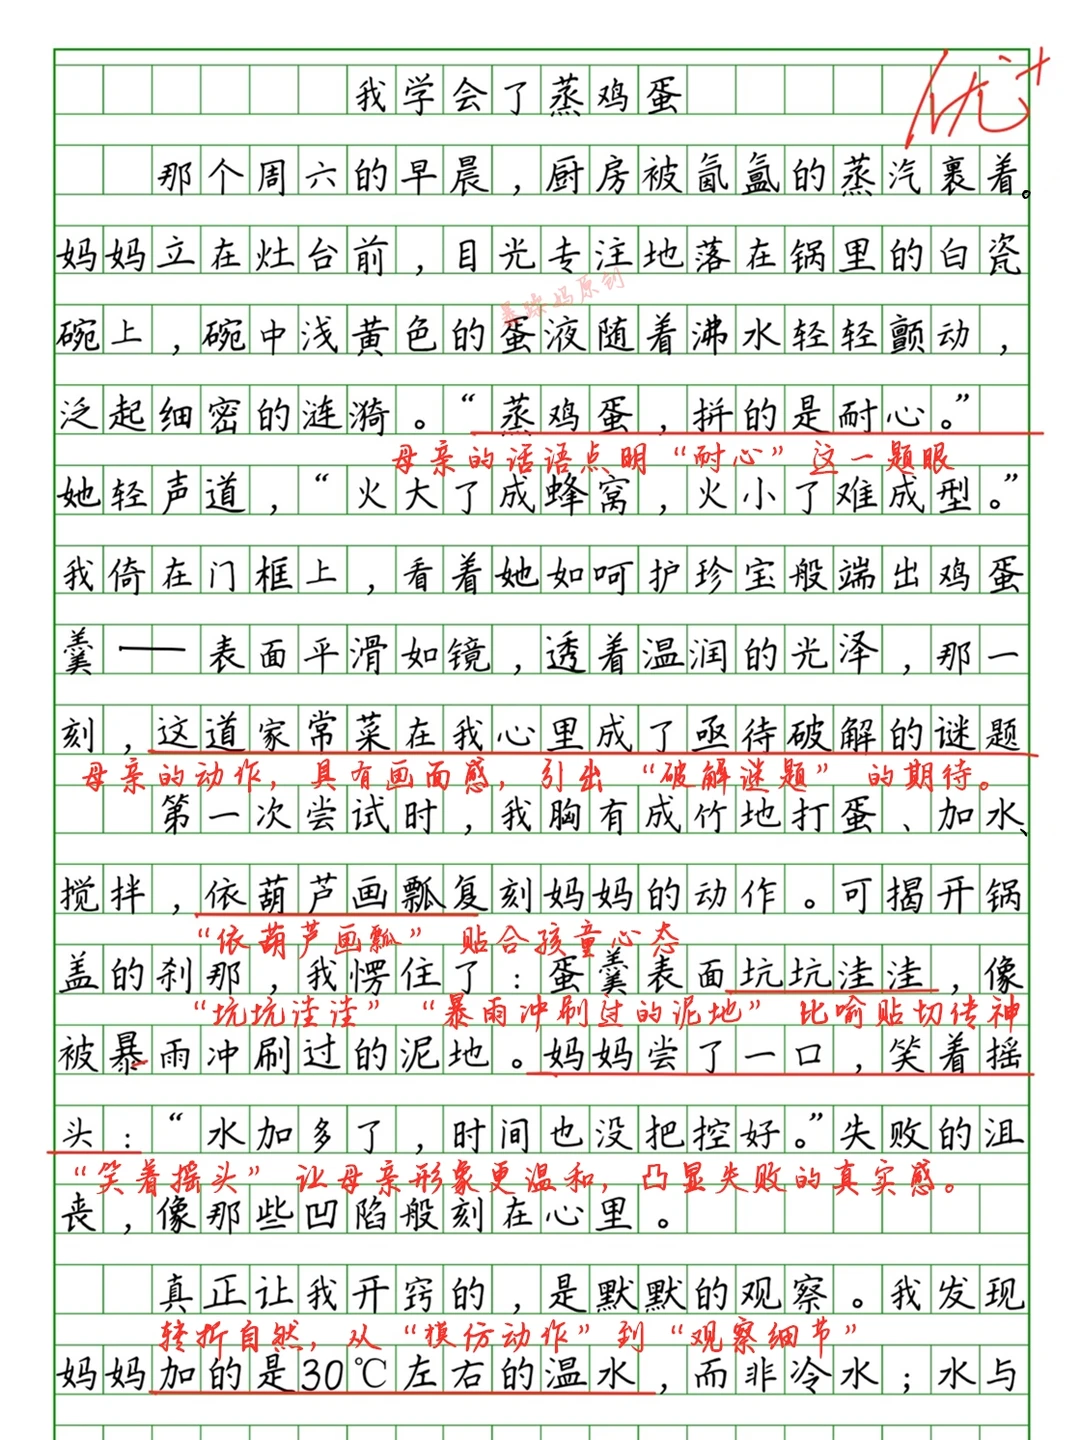 优+
我学会了蒸鸡蛋
那个周六的早晨，厨房被氤氲的蒸汽裹着。
妈妈立在灶台前，目光专注地落在锅里的白瓷
碗上，碗中浅黄色的蛋液随着沸水轻轻颤动，
泛起细密的涟漪。“蒸鸡蛋，拼的是耐心。”
母亲的话语点明“耐心”这一题眼
她轻声道，“火大了成蜂窝，火小了难成型。”
我倚在门框上，看着她如呵护珍宝般端出鸡蛋
羹——表面平滑如镜，透着温润的光泽，那一
刻，这道家常菜在我心里成了亟待破解的谜题
母亲的动作，具有画面感，引出“破解谜题”的期待。
第一次尝试时，我胸有成竹地打蛋、加水、
搅拌，依葫芦画瓢复刻妈妈的动作。可揭开锅
“依葫芦画瓢”贴合孩童心态
盖的刹那，我愣住了：蛋羹表面坑坑洼洼，像
“坑坑洼洼”“暴雨冲刷过的泥地”比喻贴切传神
被暴雨冲刷过的泥地。妈妈尝了一口，笑着摇
头：“水加多了，时间也没把控好。”失败的沮
“笑着摇头”让母亲形象更温和，凸显失败的真实感。
丧，像那些凹陷般刻在心里。
真正让我开窍的，是默默的观察。我发现
转折自然，从“模仿动作”到“观察细节”
妈妈加的是30℃左右的温水，而非冷水；水与